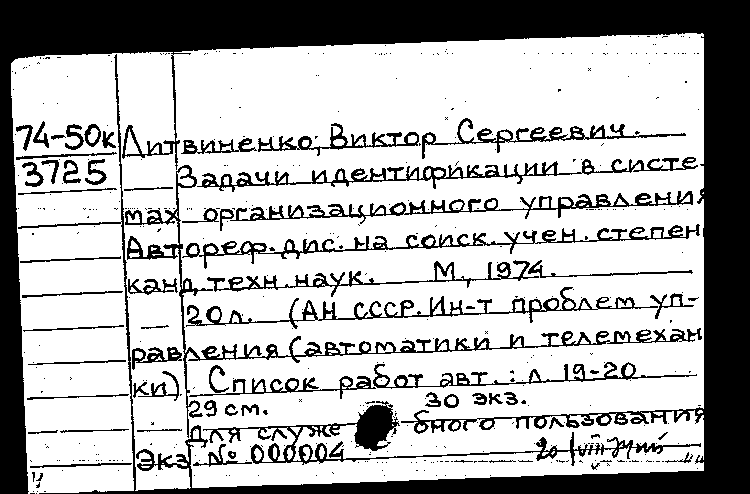 74-50к Литвиненко, Виктор Сергеевич.
3725 Задачи идентификации в систе-
мах организационного управления
Автореф. дис. на соиск. учен. степен
канд. техн. наук. М., 1974.
20 л. (АН СССР. Ин-т проблем уп-
равления (автоматики и телемехан
ки). Список работ авт.: л. 19-20.
29 см. 30 экз.
Для служебного пользования
Экз. № 000004 20/viii 74